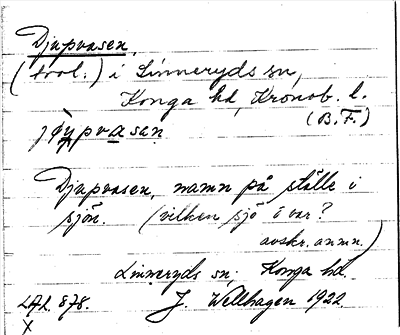 Djupvasen.
(trol.) i Linneryds sn,
Konga hd, Kronob. l.
(B.F.)
jypvasen
Djupvasen, namn på ställe i
sjön. (vilken sjö i var?
avskr. anmn.)
Linneryds sn; Konga hd.
878. J. Wellhagen 1922
X